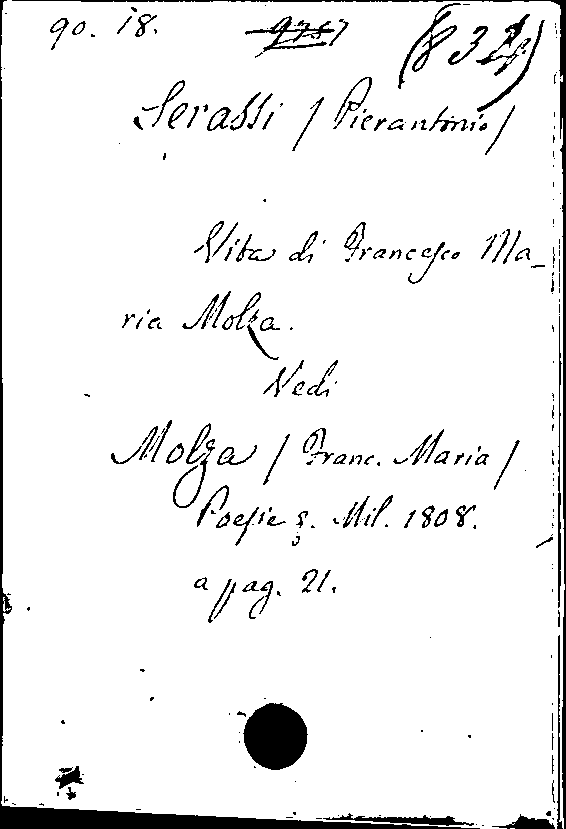 90. i8.
Serassi / Pierantonio /
Vita di Francesco Ma_
ria Molza.
Vedi
Molza / Franc. Maria /
Poesie 8. Mil. 1808.
a pag. 21.